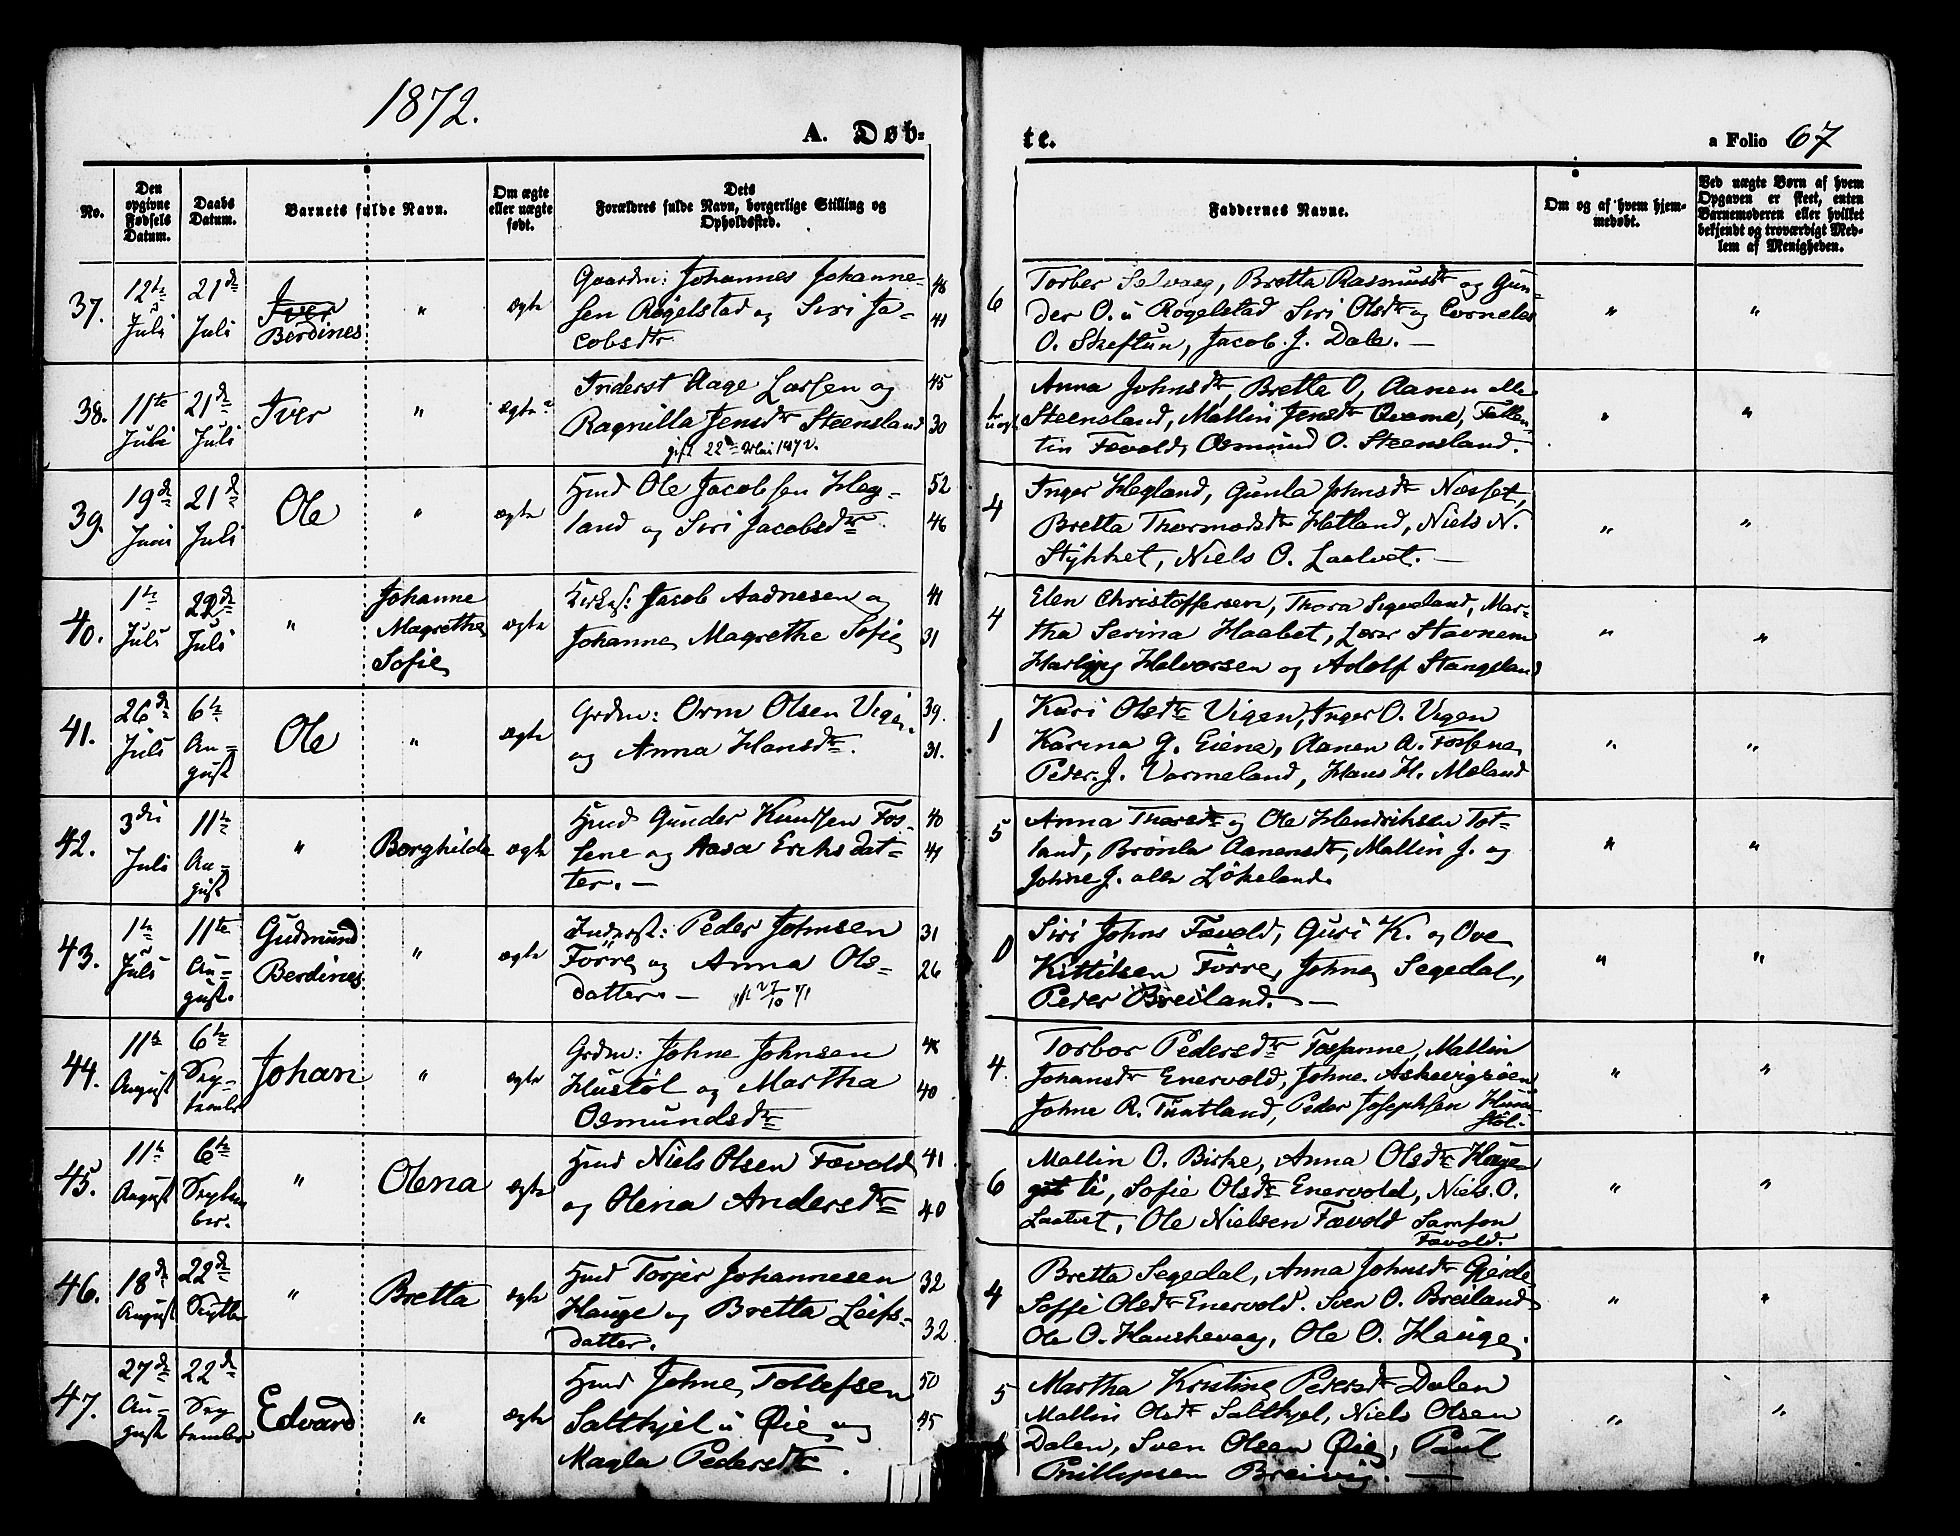 1872.
A. Døb-
te.
a Folio 67
No.
Den opgivne Fødsels Datum.
Daabs Datum.
Barnets fulde Navn.
Om ægte eller uægte født.
Dets Forældres fulde Navn, borgerlige Stilling og Opholdssted.
Faddernes Navne.
Om og af hvem hjemmedøbt.
Ved uægte Børn af hvem Opgaven er skeet, enten Barnemoderen eller hvilket bekjendt og troværdigt Medlem af Menigheden.
37. 12te Juli 21de Juli Iver Berdines " ægte
Gaardm: Johannes Johanne- 48
sen Røgelstad og Siri Ja- 41
cobsdtr
6 Torber Selvaag, Bretta Rasmusdtr og Gun-
der O. u Røgelstad Siri Olsdtr og Cornelius
O. Skeftun, Jacob. J. Dale. — " "
38. 11te Juli 21de Juli Iver " ægte
Inderst Aage Larsen og 45
Ragnilla Jensdtr Steensland 30
gift 22de Mai 1872.
Anna Johnsdtr, Bretta O, Aanen alle
Steensland, Mallin Jensdtr Qvame, Fallen-
tin Fævold, Osmund O. Steensland. " "
39. 19de Juni 21de Juli Ole " ægte
Hmd Ole Jacobsen Heg- 52
land og Siri Jacobsdtr 46
4 Inger Hegland, Gunla Johnsdtr Næsset,
Bretta Thormodsdtr Hetland, Niels N.
Stykket, Niels O. Laalvet. — " "
40. 1te Juli 22de Juli " Johanne Magrethe Sofie ægte
Kirkes: Jacob Aadnesen og 41
Johanne Magrethe Sofie 31
4 Elen Christoffersen, Thora Segeland, Mar-
tha Serina Haabet, Lærer Stavnem
Halvorsen og Adolf Stangeland " "
41. 26de Juli 6te August Ole " ægte
Grdm: Orm Olsen Vigen 39.
og Anna Hansdtr. 31.
1 Kari Olsdtr Vigen, Inger O. Vigen
Karina G. Eiene, Aanen A. Fossene
Peder. J. Varmeland, Hans H. Meland " "
42. 3die Juli 11te August " Borghilda ægte
Hmd Gunder Knudsen Fos- 40
sene og Aasa Eriksdat- 41
ter. —
5 Anna Thoresdtr og Ole Hendriksen Tot-
land, Brønla Aanensdtr, Mallin J. og
Johne J. alle Løkeland. " "
43. 1te Juli 11te August. Gudmund Berdines " ægte
Inderst: Peder Johnsen 31
Førre og Anna Ols- 26
datter. — gft 27/10 71
0 Siri Johns Fævold, Guri K. og Ove
Kittilsen Førre, Johne Segedal,
Peder Breiland. — " "
44. 11te August 6te September Johan " ægte
Grdm: Johne Johnsen 48
Hustøl og Martha 40
Osmundsdtr
4. Torbor Pedersdtr Fossanne, Mallin
Johansdtr Enervold, Johne Askvigsøen
Johne R. Tuntland, Peder Josephsen
støl. " "
45. 11te August 6te September. " Olena ægte
Hmd Niels Olsen Fævold 41
og Olena Andersdtr 40
6 Mallin O. Birke, Anna Olsdtr
Sofie Olsdtr Enervold, Niels. O.
Laalvet, Ole Nielsen Fævold Samson
Fævold. " "
46. 18de August 22de Septbr " Bretta ægte
Hmd Torjer Johannesen 32
Hauge og Bretta Leifs- 32
datter.
4 Bretta Segedal, Anna Johnsdtr Gjerde
Soffi Olsdtr Enervold. Sven O. Breiland
Ole O. Haushevaag, Ole O. Hauge. " "
47. 27de August 22de September Edvard " ægte
Hmd Johne Tollefsen 50
Saltkjel u Øie og 45
Magla Pedersdtr.
5 Martha Kristine Pedersdtr Dalen
Mallin Olsdtr Saltkjel, Niels Olsen
Dalen, Sven Olsen Øie, Paul
Phillipsen Breivig. — " "